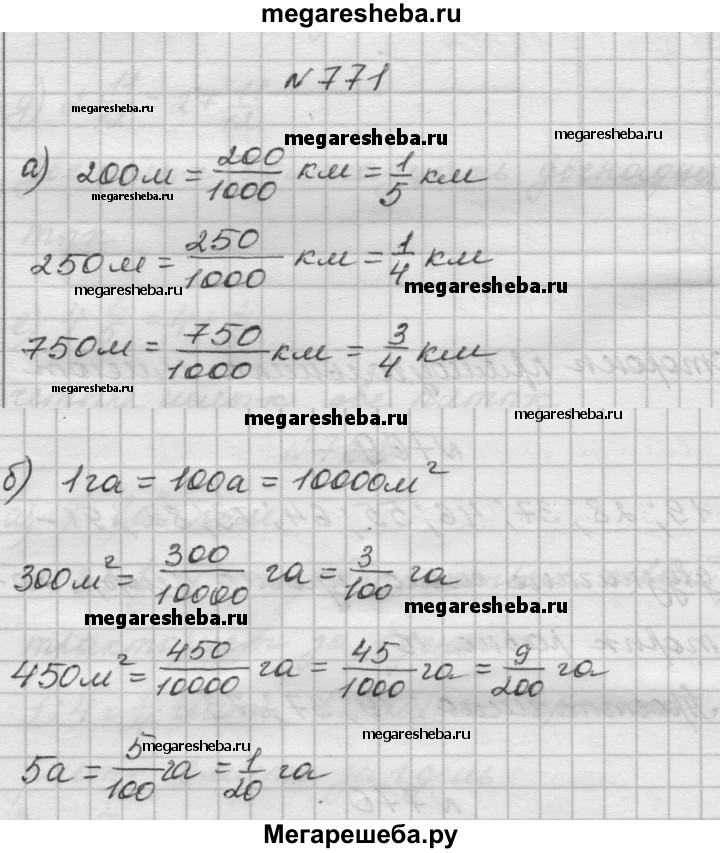 megaresheba.ru
N 771
megaresheba.ru
megaresheba.ru
megaresheba.ru
а) 200м = 200/1000 км = 1/5 км
megaresheba.ru
250м = 250/1000 км = 1/4 км
megaresheba.ru
megaresheba.ru
750м = 750/1000 км = 3/4 км
megaresheba.ru
megaresheba.ru
megaresheba.ru
б) 1га = 100а = 10000м²
300м² = 300/10000 га = 3/100 га
megaresheba.ru
megaresheba.ru
450м² = 450/10000 га = 45/1000 га = 9/200 га
megaresheba.ru
megaresheba.ru
5а = 5/100 га = 1/20 га
Мегарешеба.ру